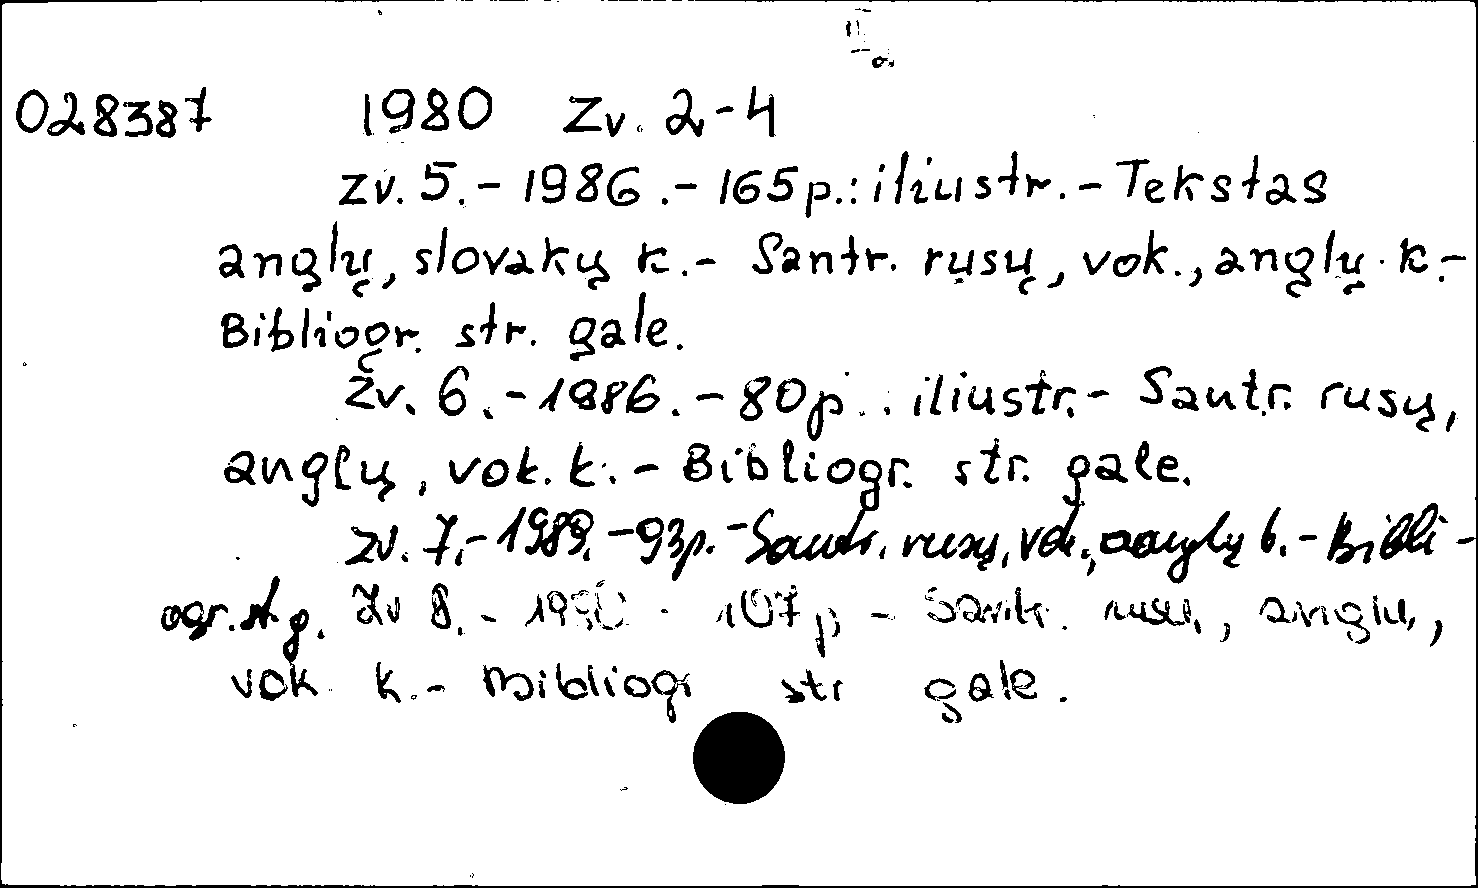 II a
028387 1980 Zv. 2-4
zv. 5.- 1986.- 165p.: iliustr.- Tekstas
anglų, slovakų k.- Santr. rusų, vok., anglų k.-
Bibliogr. str. gale.
Zv. 6.- 1986.- 80p.: iliustr.- Santr. rusų,
anglų, vok. k.- Bibliogr. str. gale.
zv. 7.- 1989.- 93p.- Santr. rusų, vok., anglų k.- Bibli-
ogr. st. g. Zv 8.- 1990 - 107p - Santr. rusų, anglų,
vok k.- Bibliogr str gale.